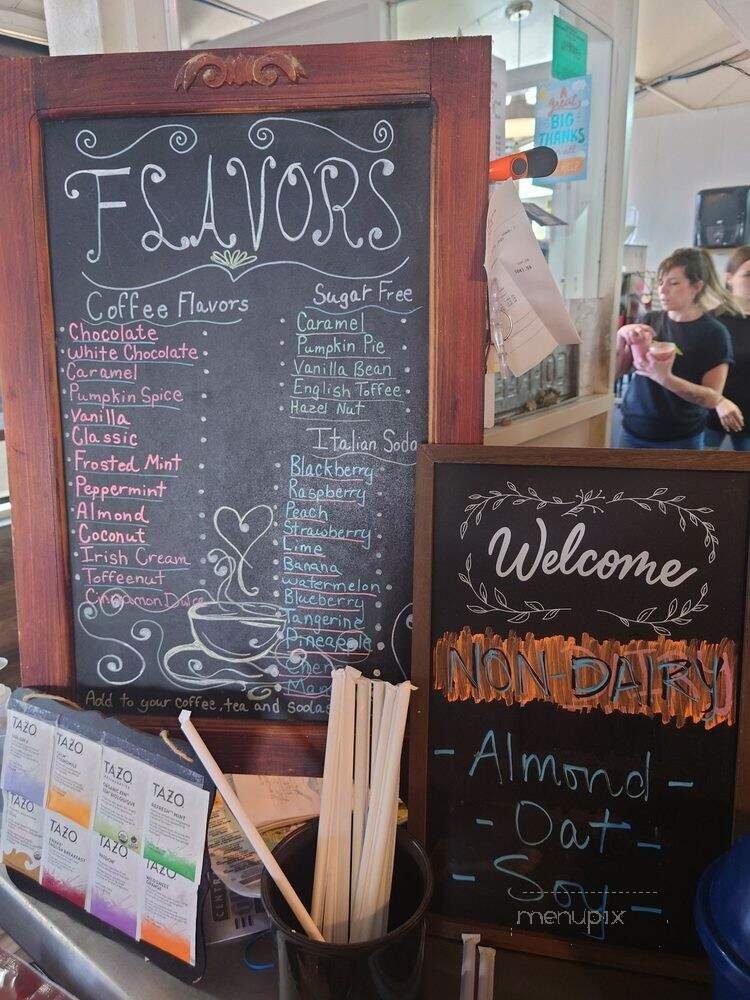 FLAVORS
Coffee Flavors
Chocolate
White Chocolate
Caramel
Pumpkin Spice
Vanilla
Classic
Frosted Mint
Peppermint
Almond
Coconut
Irish Cream
Toffeenut
Cinnamon Dulce
Sugar Free
Caramel
Pumpkin Pie
Vanilla Bean
English Toffee
Hazel Nut
Italian Soda
Blackberry
Raspberry
Peach
Strawberry
Lime
Banana
Watermelon
Blueberry
Tangerine
Pineapple
Add to your coffee, tea and sodas
A
great
BIG
THANKS
HELP
Welcome
NON-DAIRY
- Almond -
- Oat -
- Soy -
menupix
TAZO
TAZO
TAZO
TAZO
REFRESH MINT
TAZO
TAZO
TAZO